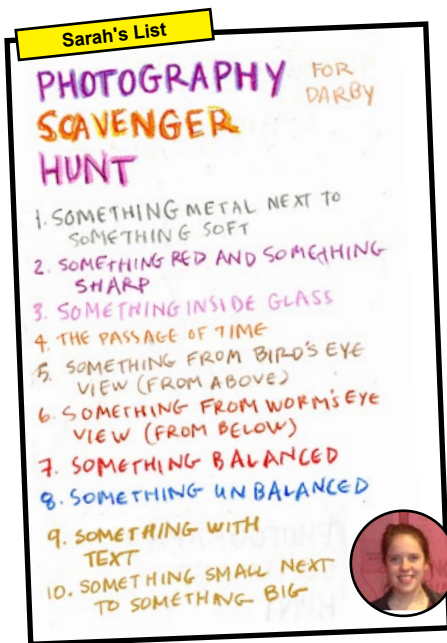 Sarah's List
PHOTOGRAPHY
SCAVENGER
HUNT
FOR
DARBY
1. SOMETHING METAL NEXT TO
SOMETHING SOFT
2. SOMETHING RED AND SOMETHING
SHARP
3. SOMETHING INSIDE GLASS
4. THE PASSAGE OF TIME
5. SOMETHING FROM BIRD'S EYE
VIEW (FROM ABOVE)
6. SOMETHING FROM WORM'S EYE
VIEW (FROM BELOW)
7. SOMETHING BALANCED
8. SOMETHING UNBALANCED
9. SOMETHING WITH
TEXT
10. SOMETHING SMALL NEXT
TO SOMETHING BIG